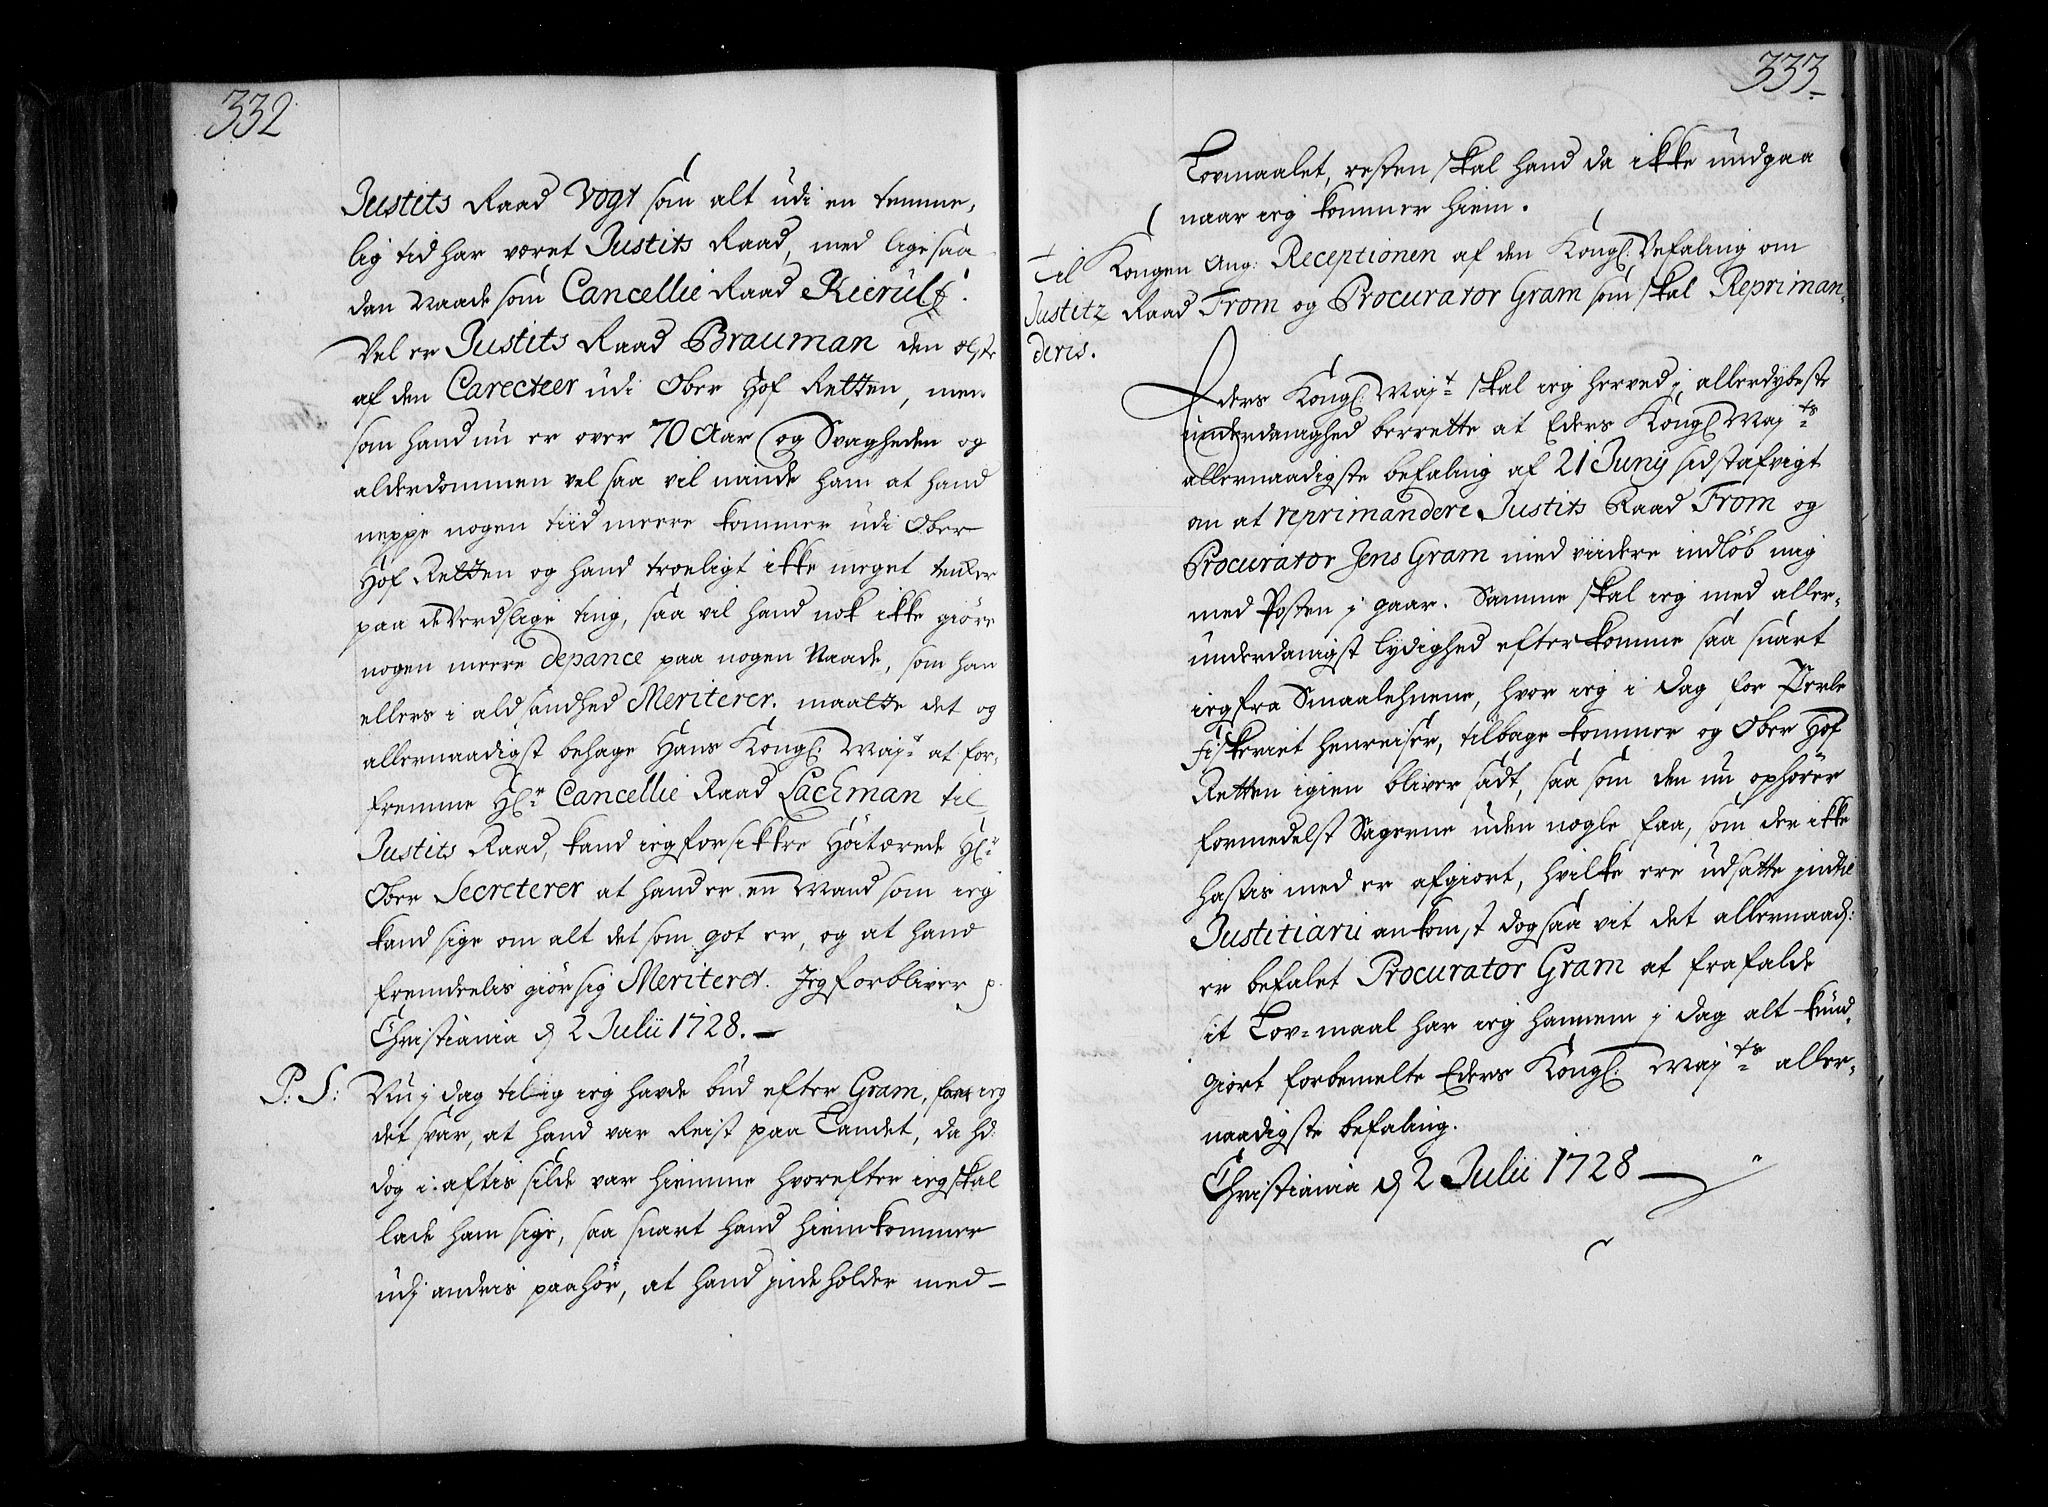 332
Justits Raad Vogt som alt udi en temme,
lig tid har været Justits Raad, med ligesaa
dan Naade som Cancellie Raad Kierulf.
Vel er Justits Raad Brauman den elste
af den Carecteer udi Ober Hof Retten, men
som hand nu er over 70 Aar og Svagheden og
alderdommen vel saa vil minde ham at hand
neppe nogen tiid meere kommer udi Ober
Hof Retten og hand troeligt ikke meget tenker
paa de Verdslige ting, saa vil hand nok ikke giøre
nogen meere depance paa nogen Naade, som han
ellers i ald sandhed Meriterer. maatte det og
allernaadigst behage Hans Kongl: Mayt at for-
fremme Hr Cancellie Raad Lachman til
Justits Raad, kand ieg forsikkre Høitærede Hr
Ober Secreterer at hand er en Mand som ieg
kand sige om alt det som got er, og at hand
fremdeelis giør sig Meriteret. Jeg forbliver p.
Christiania d 2 Julii 1728.
P: S: Nu j dag tilig ieg havde bud efter Gram, fik ieg
det svar, at hand var Reist paa Landet, da hd:
dog i aftis silde var hiemme hvorefter ieg skal
lade ham sige, saa snart hand hiemkommer
udj andris paahør, at hand jndeholder med
333
Lovmaalet, resten skal hand da ikke undgaa
naar ieg kommer hiem.
Til Kongen Ang: Receptionen af den Kongl: Befaling om
Justitz Raad From og Procurator Gram som skal Repriman-
deris.
Eders Kongl: Mayt skal ieg herved j allerdybeste
underdanighed berrette at Eders Kongl Mayts
allernaadigste befaling af 21 Junij sidstafvigt
om at reprimandere Justits Raad From og
Procurator Jens Gram med viidere indløb mig
med Posten j gaar. Samme skal ieg med aller-
underdanigst lydighed efterkomme saa snart
ieg fra Smaalehnene, hvor ieg i dag for Perle
Fiskeriet henreiser, tilbage kommer og Ober Hof
Retten igien bliver sadt, saa som den nu ophører
formedelst Sagerne uden nogle faa, som der ikke
hastis med er afgiort, hvilke ere udsatte jndtil
Justitiarii ankomst dog saa vit det allernaad:
er befalet Procurator Gram at frafalde
sit Lov-maal har ieg hannem j dag alt kund-
giort forbemelte Eders Kongl: Mayts aller-
naadigste befaling.
Christiania d 2 Julii 1728